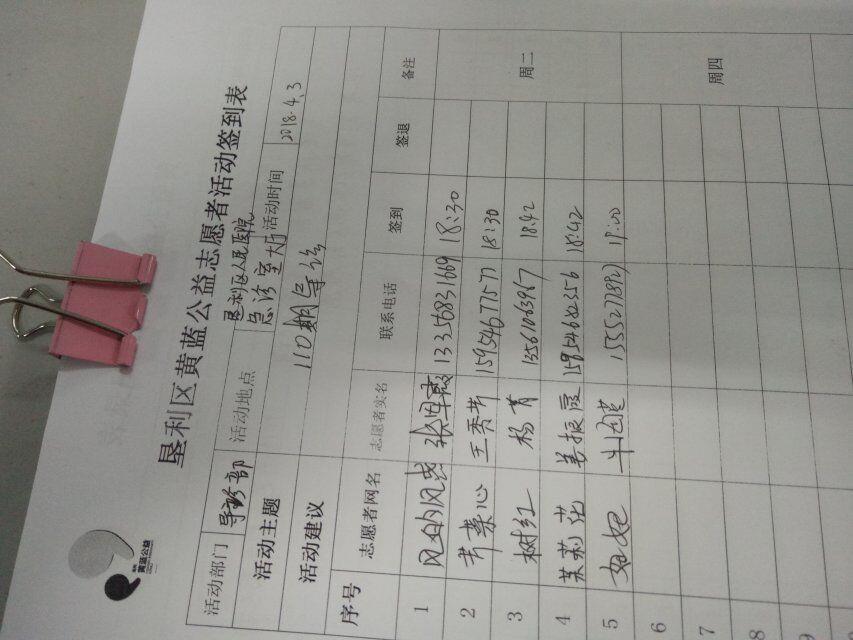 黄蓝公益
垦利区黄蓝公益志愿者活动签到表
活动部门 导诊部 活动地点 垦利区人民医院 急诊室大厅 活动时间 2018.4.3
活动主题 110期导诊
活动建议
序号 志愿者网名 志愿者实名 联系电话 签到 签退 备注
1 13356831669 18:30 周二
2 芹菜心 王秀芹 15954677577 18:30
3 树红 杨菁 13561063967 18.42
4 茉莉花 姜振霞 15954682356 18:42
5 妞妞 15552778927 19:00
6 周四
7
8
9